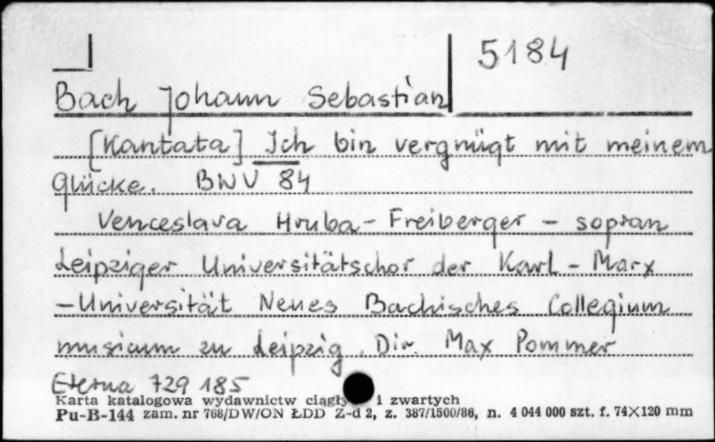 5184
Bach Johann Sebastian
[Kantata] Ich bin vergnügt mit meinem
Glücke. BWV 84
Venceslava Hruba-Freiberger - sopran
Leipziger Universitätschor der Karl-Marx
-Universität Neues Bachisches Collegium
musicum zu Leipzig. Dir. Max Pommer
Eterna 729 185
Karta katalogowa wydawnictw ciągły i zwartych
Pu-B-144 zam. nr 768/DW/ON ŁDD Z-d 2, z. 387/1500/86, n. 4 044 000 szt. f. 74×120 mm